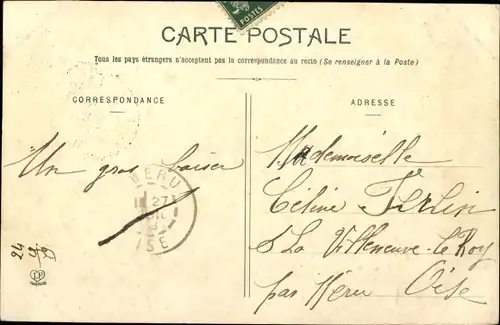 POSTES
CARTE POSTALE
Tous les pays étrangers n'acceptent pas la correspondance au recto (Se renseigner à la Poste)
CORRESPONDANCE
Un gros baiser
MERU
27
OISE
24
ADRESSE
Mademoiselle
Céline
à La Villeneuve-le Roy
par Méru Oise